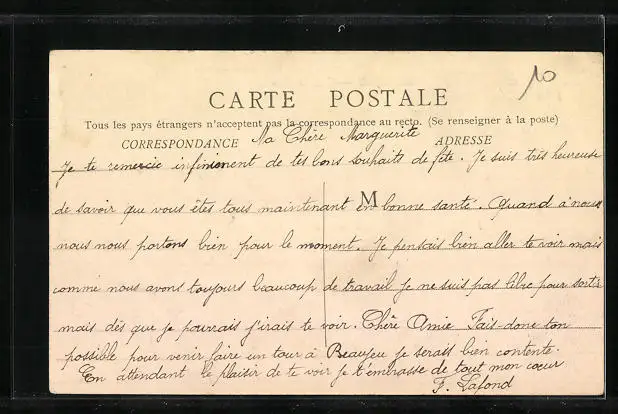 10
CARTE POSTALE
Tous les pays étrangers n'acceptent pas la correspondance au recto. (Se renseigner à la poste)
CORRESPONDANCE Ma Chère Marguerite ADRESSE
Je te remercie infiniment de tes bons souhaits de fête. Je suis très heureuse
de savoir que vous êtes tous maintenant en M bonne santé. Quand à nous
nous nous portons bien pour le moment. Je pensais bien aller te voir mais
comme nous avons toujours beaucoup de travail je ne suis pas libre pour sortir
mais dès que je pourrais j'irais te voir. Chère Amie Fais-donc ton
possible pour venir faire un tour à Beaujeu je serais bien contente.
En attendant le plaisir de te voir je t'embrasse de tout mon cœur
F. Lafond